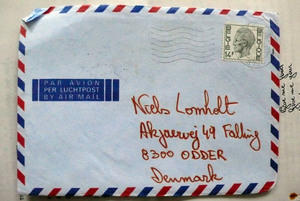 PAR AVION
PER LUCHTPOST
BY AIR MAIL
Niels Lomholt
Akjaervej 49 Falling
8300 ODDER
Denmark